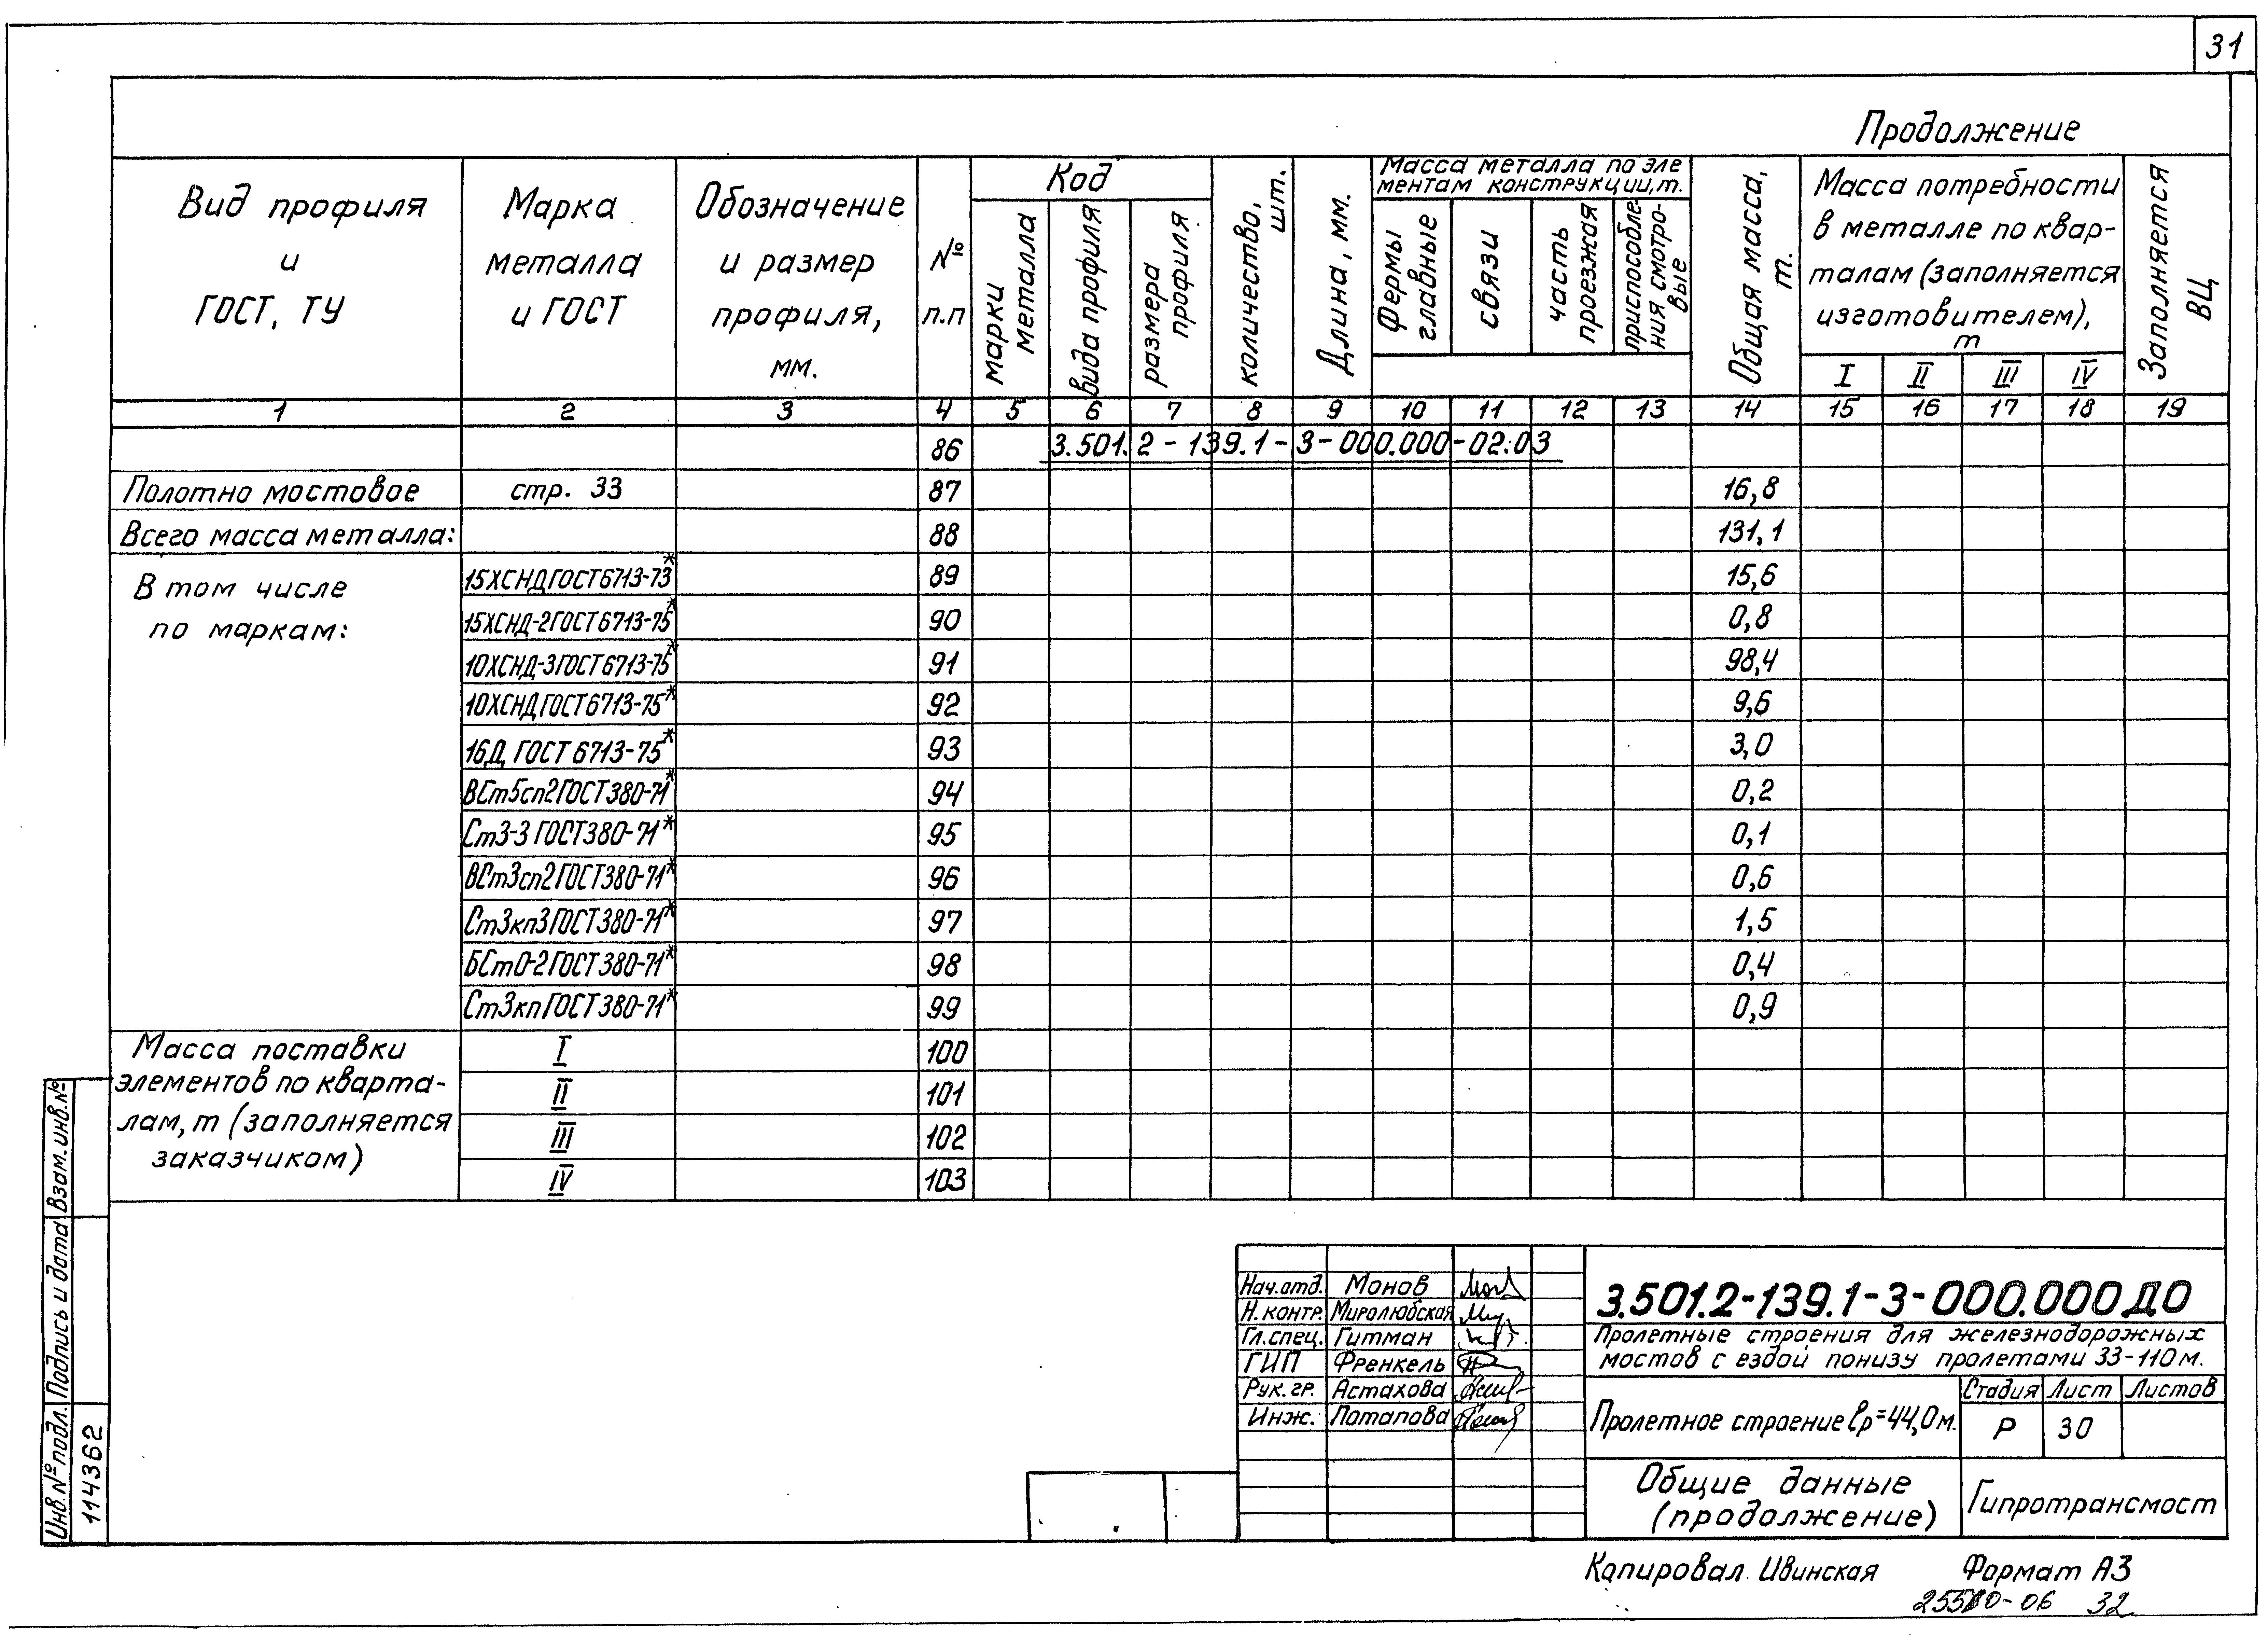 31
Продолжение
Вид профиля
и
ГОСТ, ТУ
Марка
металла
и ГОСТ
Обозначение
и размер
профиля,
мм.
№
п.п
Код
марки
металла
вида профиля
размера
профиля
количество,
шт.
Длина, мм.
Масса металла по эле
ментам конструкции, т.
Фермы
главные
связи
часть
проезжая
приспособле-
ния смотро-
вые
Общая масса,
т.
Масса потребности
в металле по квар-
талам (заполняется
изготовителем),
т
I II III IV
Заполняется
ВЦ
1 2 3 4 5 6 7 8 9 10 11 12 13 14 15 16 17 18 19
86 3.501.2-139.1-3-000.000-02:03
Полотно мостовое стр. 33 87 16,8
Всего масса металла: 88 131,1
В том числе
по маркам:
15ХСНД ГОСТ 6713-73* 89 15,6
15ХСНД-2 ГОСТ 6713-75* 90 0,8
10ХСНД-3 ГОСТ 6713-75* 91 98,4
10ХСНД ГОСТ 6713-75* 92 9,6
16Д ГОСТ 6713-75* 93 3,0
ВСт5сп2 ГОСТ 380-71* 94 0,2
Ст3-3 ГОСТ 380-71* 95 0,1
ВСт3сп2 ГОСТ 380-71* 96 0,6
Ст3кп3 ГОСТ 380-71* 97 1,5
БСт0-2 ГОСТ 380-71* 98 0,4
Ст3кп ГОСТ 380-71* 99 0,9
Масса поставки
элементов по кварта-
лам, т (заполняется
заказчиком)
I 100
II 101
III 102
IV 103
Взам. инв. №
Подпись и дата
Инв. № подл.
114362
Нач. отд. Монов
Н. контр. Миролюбская
Гл. спец. Гитман
ГИП Френкель
Рук. гр. Астахова
Инж. Потапова
3.501.2-139.1-3-000.000 ДО
Пролетные строения для железнодорожных
мостов с ездой понизу пролетами 33-110 м.
Пролетное строение ℓр=44,0 м.
Стадия Лист Листов
Р 30
Общие данные
(продолжение)
Гипротрансмост
Копировал Ивинская Формат А3
-06 32